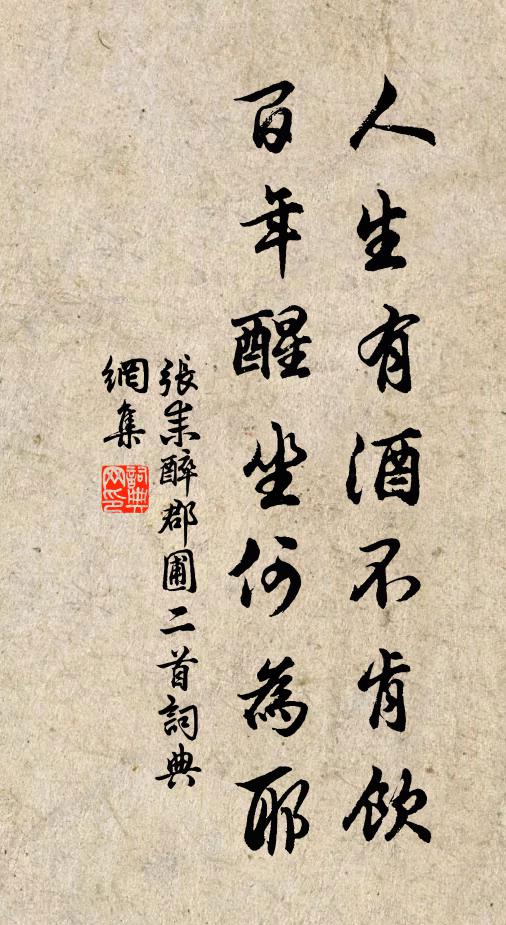 人生有酒不肯飲
百年醒坐何為耶
張耒醉郡圃二首詞典
網集
詞典網印